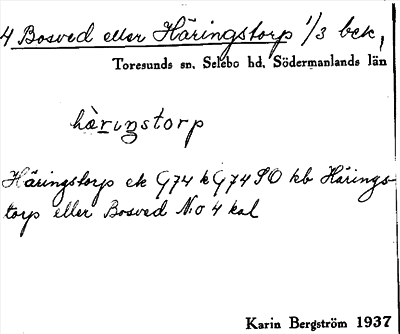 4 Bosved eller Häringstorp 1/3 bek,
Toresunds sn. Selebo hd. Södermanlands län
hàrıṉgstorp
Häringstorp ek G74 k G74 SO kb Härings-
torp eller Bosved No 4 kal
Karin Bergström 1937